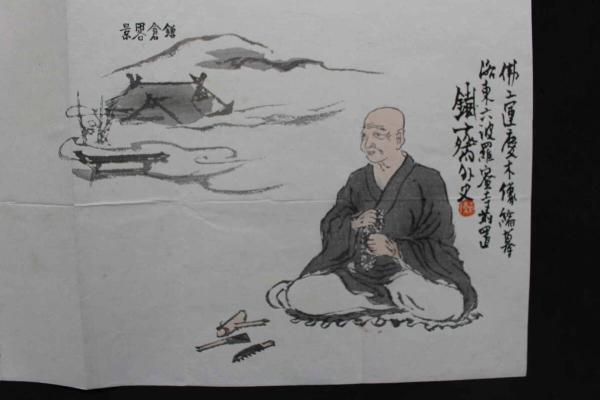 鎌倉畧景
佛工運慶木像縮摹
洛東六波羅蜜寺所置
鐵斎外史